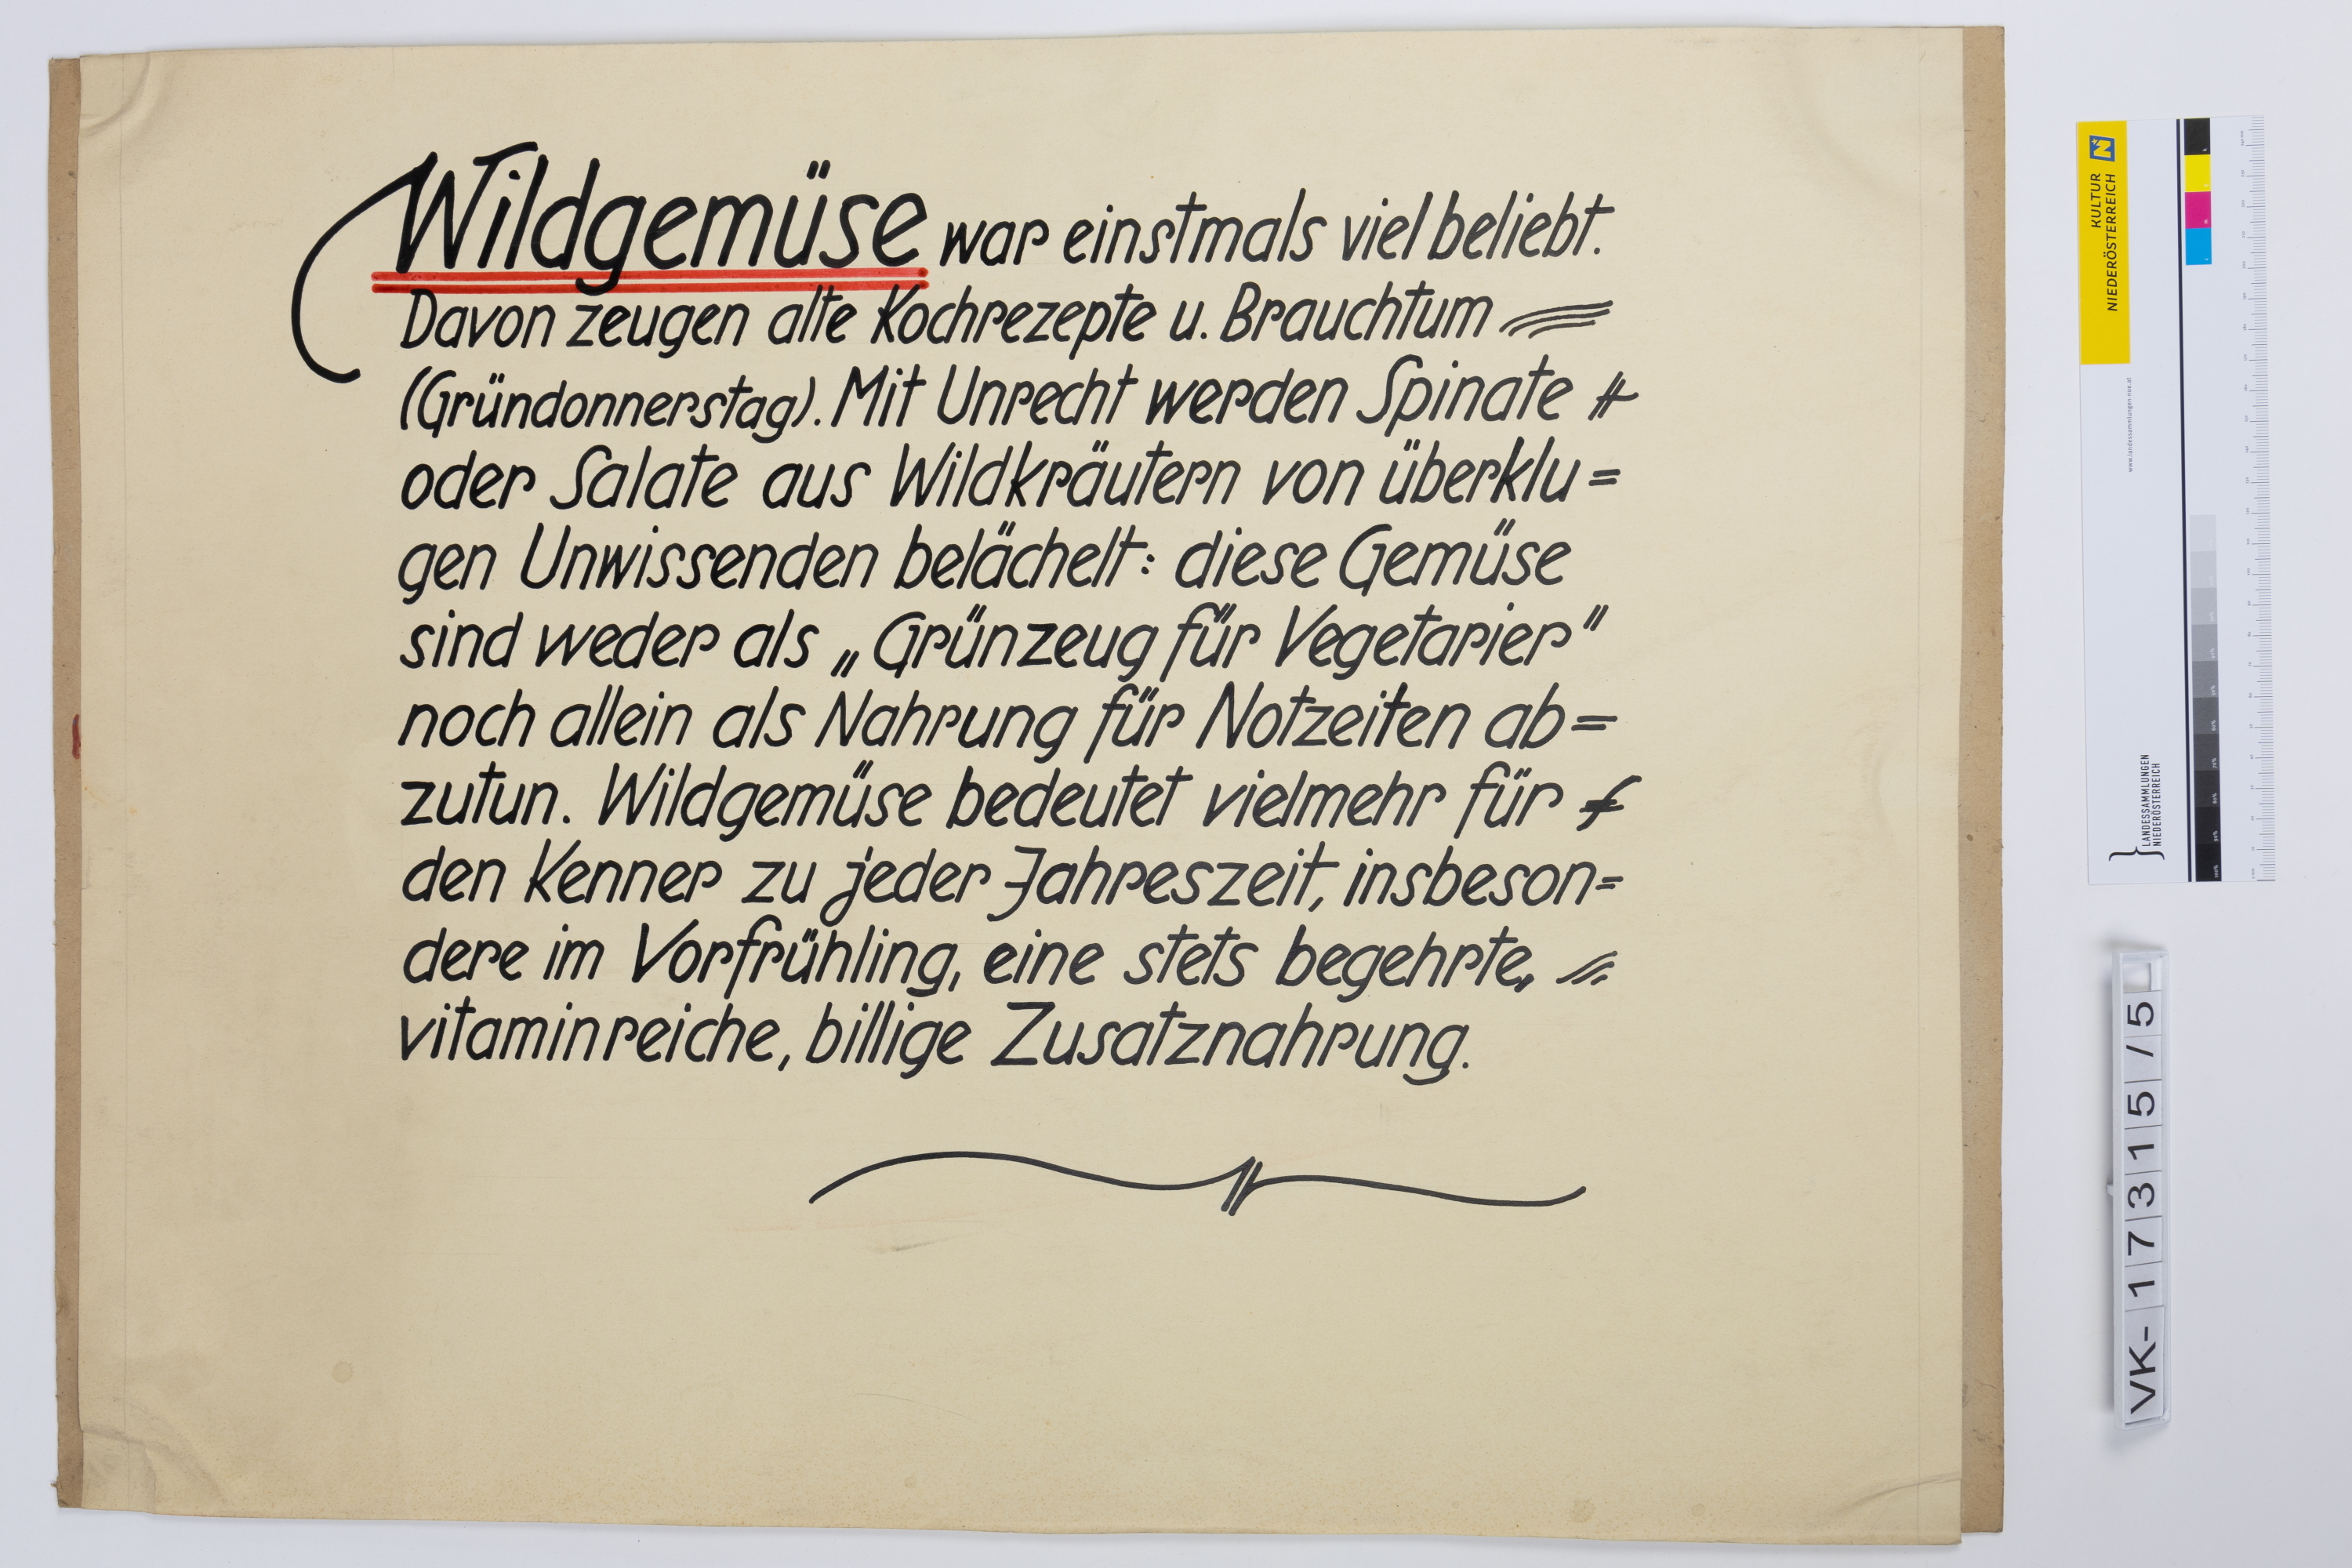 Wildgemüse war einstmals viel beliebt.
Davon zeugen alte Kochrezepte u. Brauchtum
(Gründonnerstag). Mit Unrecht werden Spinate
oder Salate aus Wildkräutern von überklu=
gen Unwissenden belächelt: diese Gemüse
sind weder als „Grünzeug für Vegetarier"
noch allein als Nahrung für Notzeiten ab=
zutun. Wildgemüse bedeutet vielmehr für
den Kenner zu jeder Jahreszeit, insbeson=
dere im Vorfrühling, eine stets begehrte,
vitaminreiche, billige Zusatznahrung.
KULTUR
NIEDERÖSTERREICH
www.landessammlungen-noe.at
LANDESSAMMLUNGEN
NIEDERÖSTERREICH
VK-17315/5